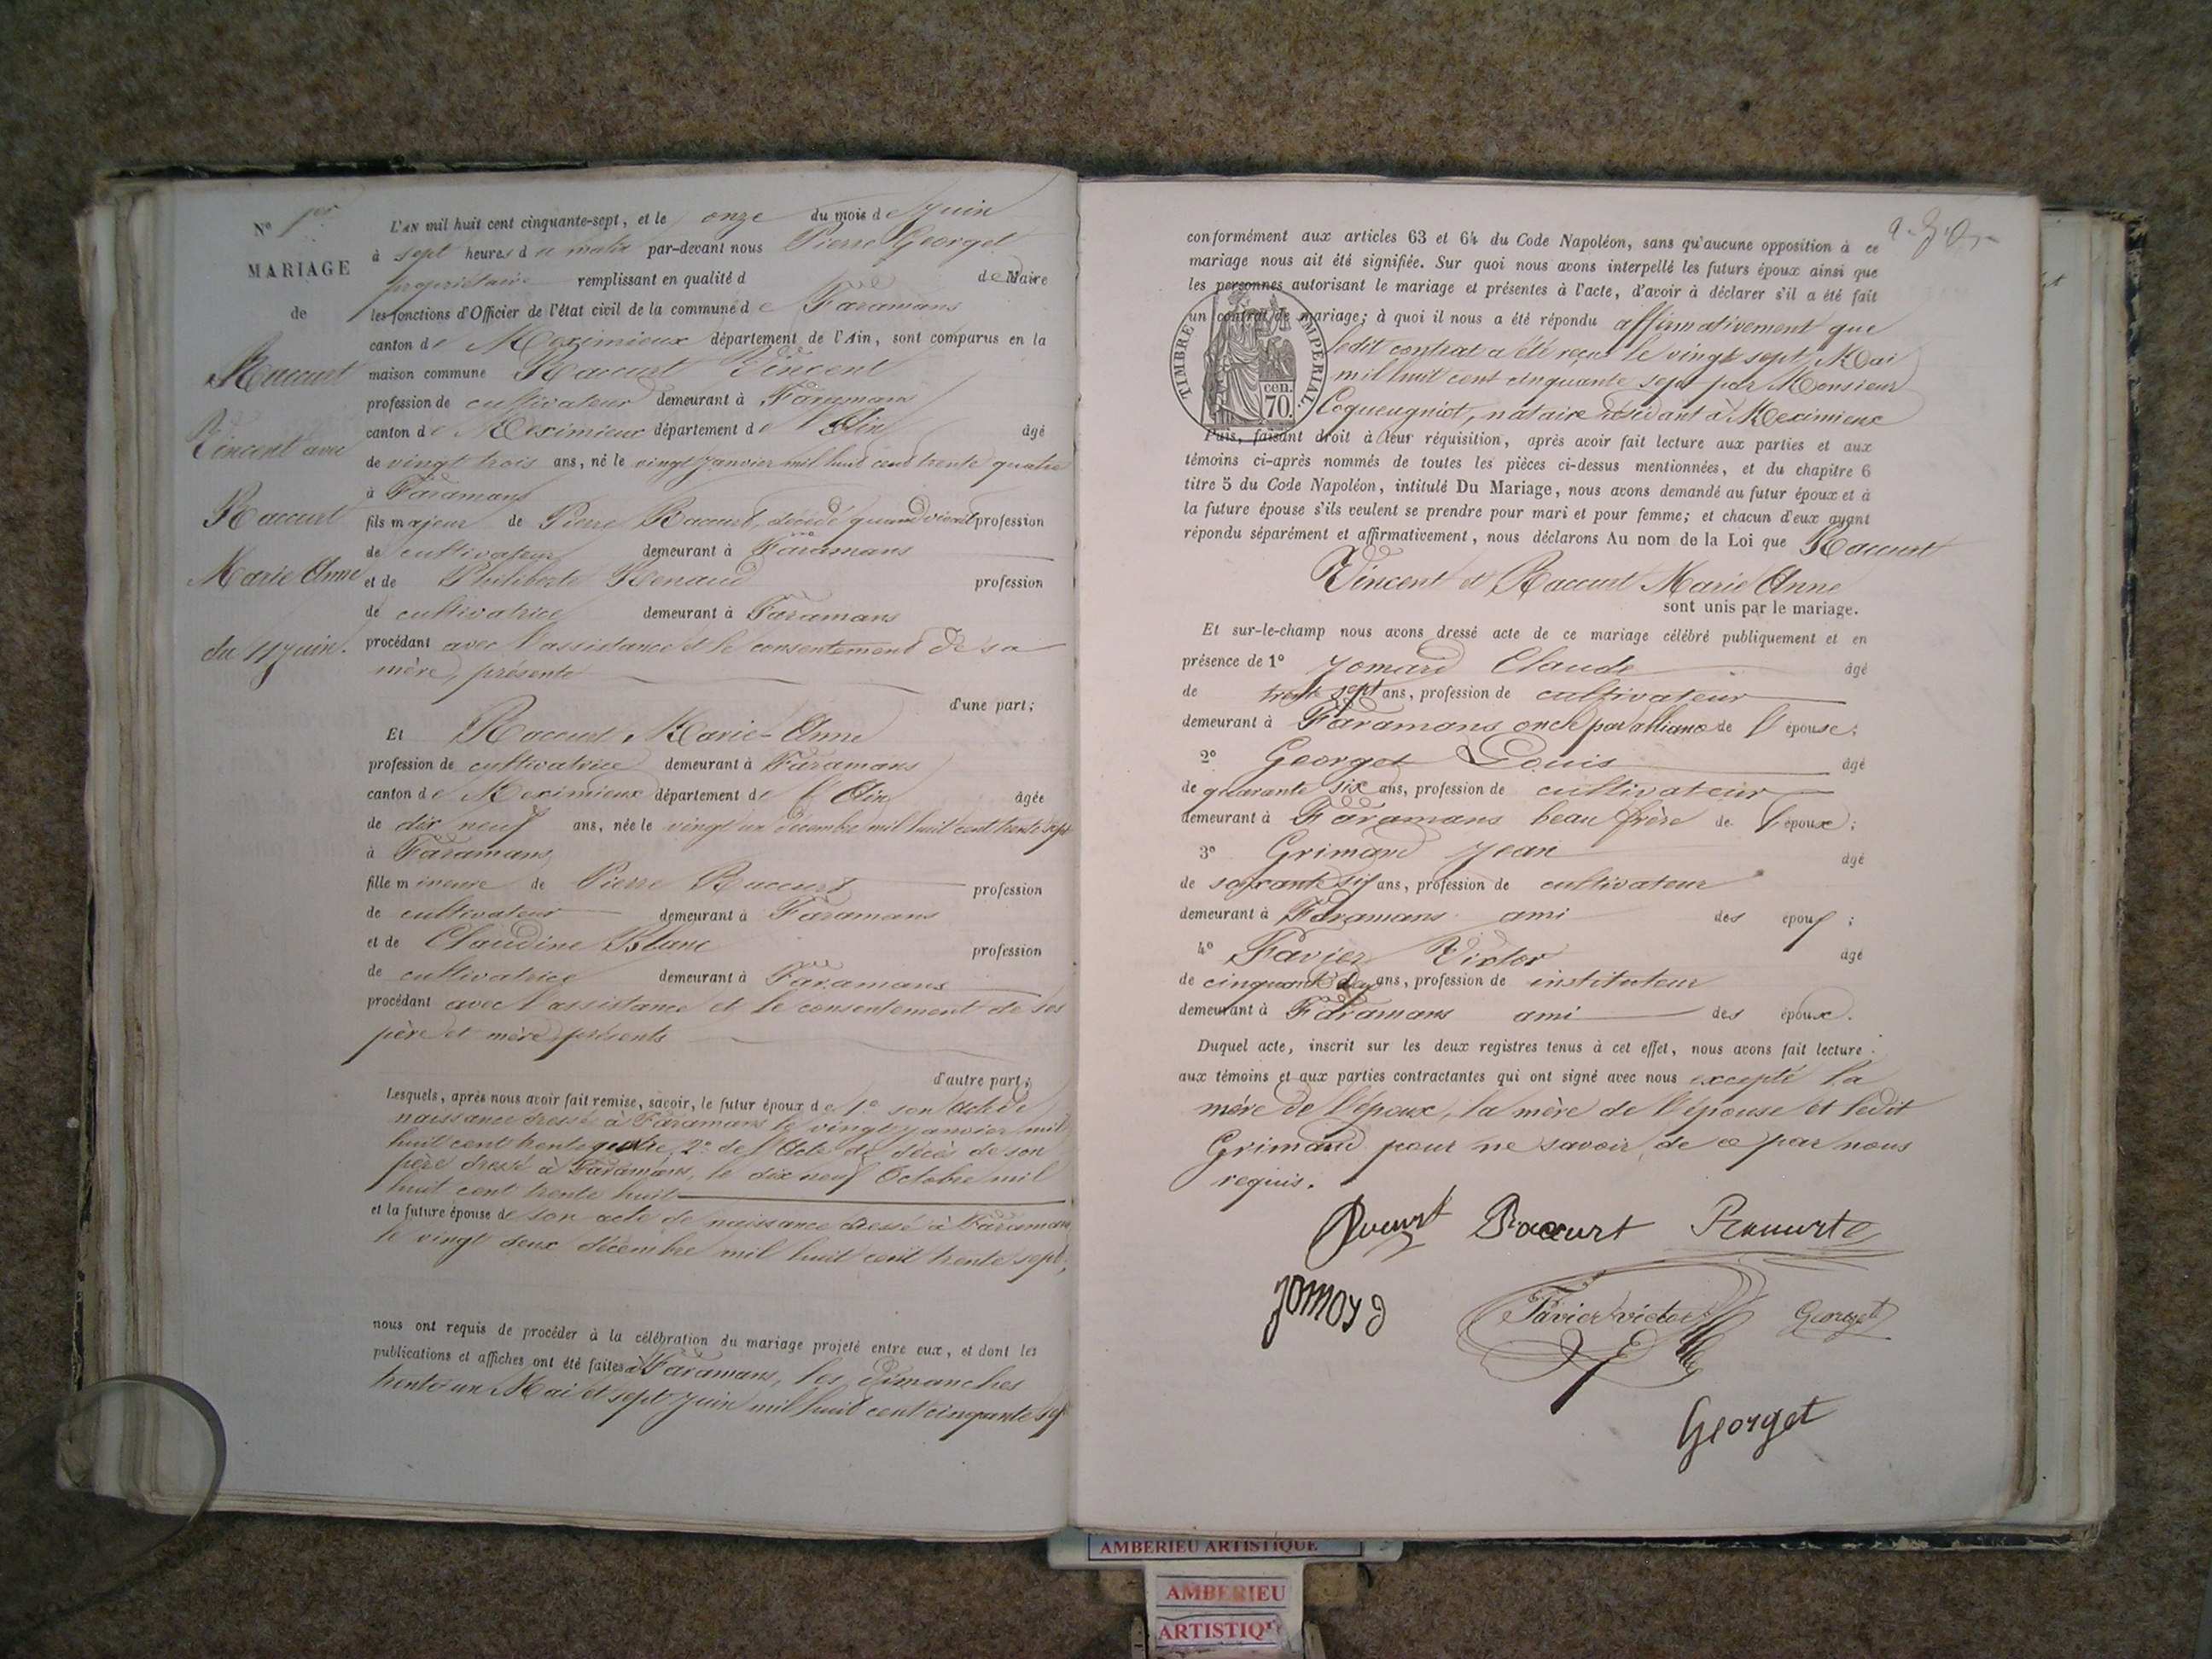 N° 1er
MARIAGE
de
Raccurt
Vincent avec
Raccurt
Marie Anne
du 11 Juin.
L'AN mil huit cent cinquante-sept, et le onze du mois de Juin
à sept heures du matin par-devant nous Pierre Georget
propriétaire remplissant en qualité d de Maire
les fonctions d'Officier de l'état civil de la commune de Faramans
canton de Meximieux département de l'Ain, sont comparus en la
maison commune Raccurt Vincent
profession de cultivateur demeurant à Faramans
canton de Meximieux département de l'Ain âgé
de vingt trois ans, né le vingt Janvier mil huit cent trente quatre
à Faramans
fils majeur de Pierre Raccurt, décédé quand vivait profession
de cultivateur demeurant à Faramans
et de Philiberte Renaud profession
de cultivatrice demeurant à Faramans
procédant avec l'assistance et le consentement de sa
mère, présente
d'une part;
Et Raccurt Marie-Anne
profession de cultivatrice demeurant à Faramans
canton de Meximieux département de l'Ain âgée
de dix neuf ans, née le vingt un décembre mil huit cent trente sept
à Faramans
fille mineure de Pierre Raccurt profession
de cultivateur demeurant à Faramans
et de Claudine Blanc profession
de cultivatrice demeurant à Faramans
procédant avec l'assistance et le consentement de ses
père et mère présents
d'autre part;
Lesquels, après nous avoir fait remise, savoir, le futur époux de 1° son Acte de
naissance dressé à Faramans le vingt janvier mil
huit cent trente quatre, 2° de l'Acte de décès de son
père dressé à Faramans, le dix neuf Octobre mil
huit cent trente huit
et la future épouse de son acte de naissance dressé à Faramans
le vingt deux décembre mil huit cent trente sept,
nous ont requis de procéder à la célébration du mariage projeté entre eux, et dont les
publications et affiches ont été faites à Faramans, les Dimanches
trente un Mai et sept Juin mil huit cent cinquante sept
conformément aux articles 63 et 64 du Code Napoléon, sans qu'aucune opposition à ce
mariage nous ait été signifiée. Sur quoi nous avons interpellé les futurs époux ainsi que
les personnes autorisant le mariage et présentes à l'acte, d'avoir à déclarer s'il a été fait
un contrat de mariage; à quoi il nous a été répondu affirmativement que
ledit contrat a été reçu le vingt sept Mai
mil huit cent cinquante sept par Monsieur
Coqueugniot, notaire résidant à Meximieux
TIMBRE IMPERIAL.
cen.
70.
Puis, faisant droit à leur réquisition, après avoir fait lecture aux parties et aux
témoins ci-après nommés de toutes les pièces ci-dessus mentionnées, et du chapitre 6
titre 5 du Code Napoléon, intitulé Du Mariage, nous avons demandé au futur époux et à
la future épouse s'ils veulent se prendre pour mari et pour femme; et chacun d'eux ayant
répondu séparément et affirmativement, nous déclarons Au nom de la Loi que Raccurt
Vincent et Raccurt Marie Anne
sont unis par le mariage.
Et sur-le-champ nous avons dressé acte de ce mariage célébré publiquement et en
présence de 1° Jomard Claude âgé
de trente sept ans, profession de cultivateur
demeurant à Faramans oncle par alliance de l'épouse;
2° Georget Louis âgé
de quarante six ans, profession de cultivateur
demeurant à Faramans beau frère de l'époux;
3° Grimand Jean âgé
de soixante six ans, profession de cultivateur
demeurant à Faramans ami des époux;
4° Favier Victor âgé
de cinquante ans, profession de instituteur
demeurant à Faramans ami des époux.
Duquel acte, inscrit sur les deux registres tenus à cet effet, nous avons fait lecture
aux témoins et aux parties contractantes qui ont signé avec nous excepté la
mère de l'époux, la mère de l'épouse et ledit
Grimand pour ne savoir, de ce par nous
requis.
Raccurt Raccurt Raccurt
Jomard Favier victor Georget
Georget
AMBERIEU ARTISTIQUE
AMBERIEU
ARTISTIQ